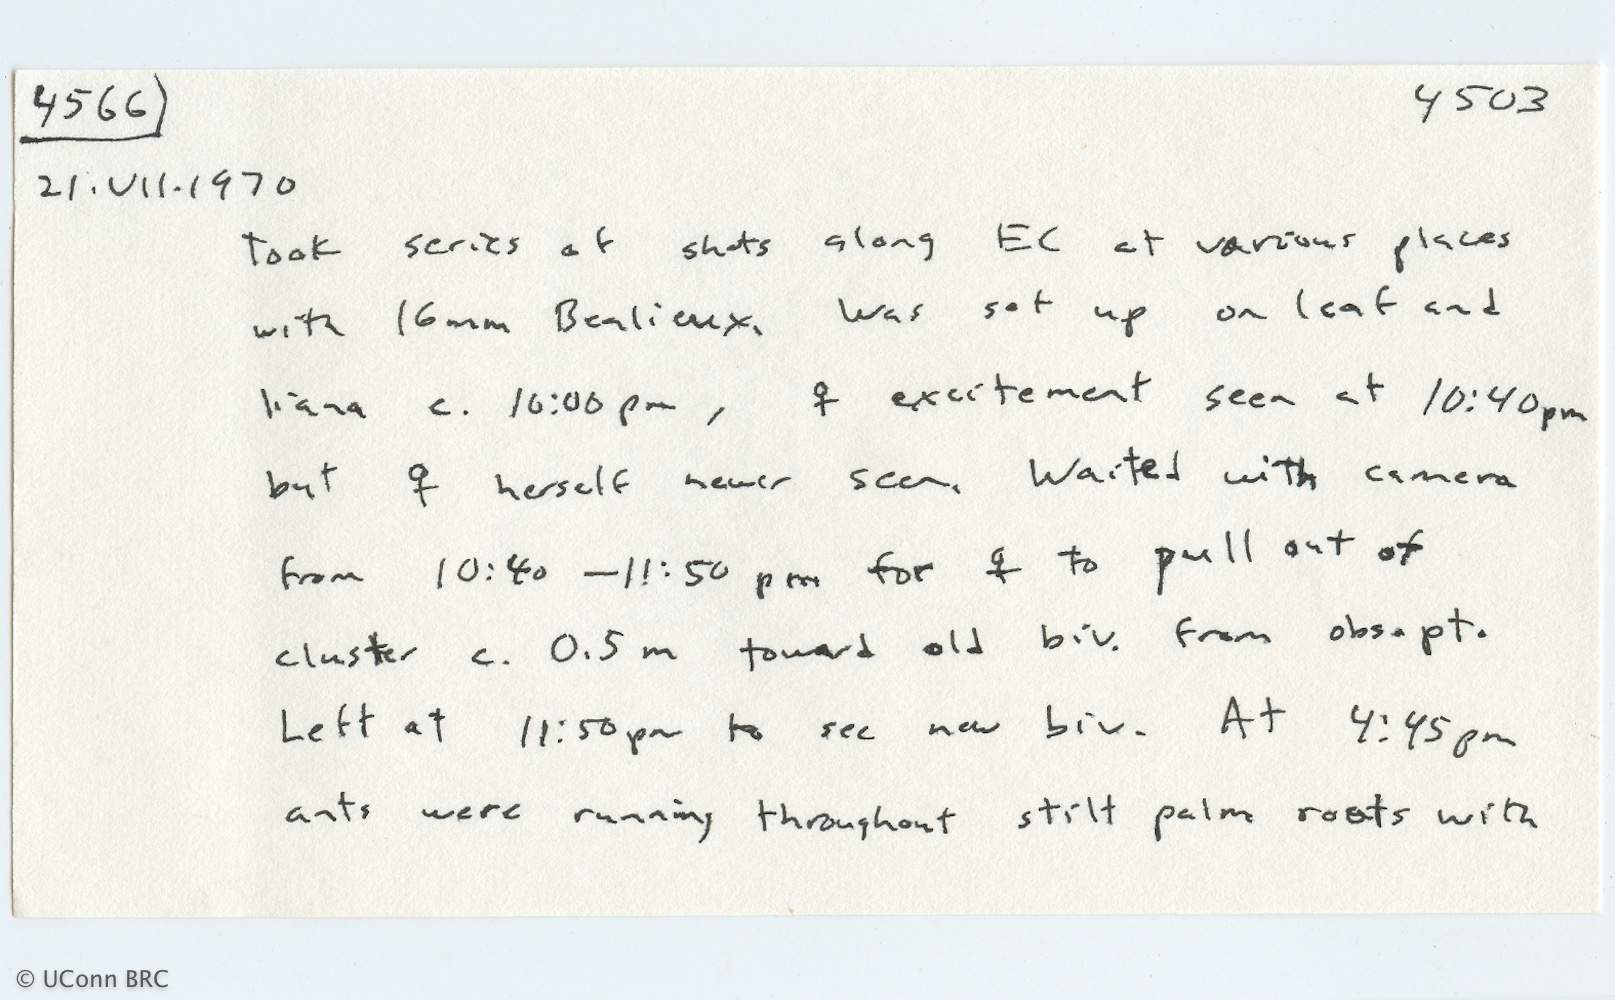 4566) 4503
21.VII.1970
Took series of shots along EC at various places
with 16mm Bealieux. Was set up on leaf and
liana c. 10:00 pm, ♀ excitement seen at 10:40pm
but ♀ herself never seen. Waited with camera
from 10:40 – 11:50 pm for ♀ to pull out of
cluster c. 0.5 m toward old biv. from obs. pt.
Left at 11:50 pm to see new biv. At 4:45 pm
ants were running throughout stilt palm roots with
© UConn BRC